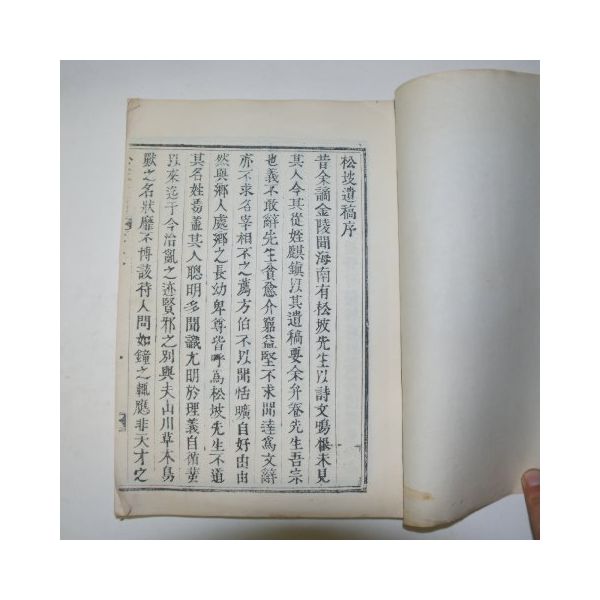 松坡遺稿序
昔余謫金陵聞海南有松坡先生以詩文鳴恨未見
其人今其從姪麒鎭以其遺稿要余弁卷先生吾宗
也義不敢辭先生貧愈介窮益堅不求聞達爲文辭
亦不求名宰相不之薦方伯不以聞恬曠自好由由
然與鄕人處鄕之長幼卑尊皆呼爲松坡先生不道
其名姓焉盖其人聰明多聞識尤明於理義自循蜚
以來迄于今治亂之迹賢邪之別與夫山川草木鳥
獸之名狀靡不博該待人問如鐘之輒應非天才之